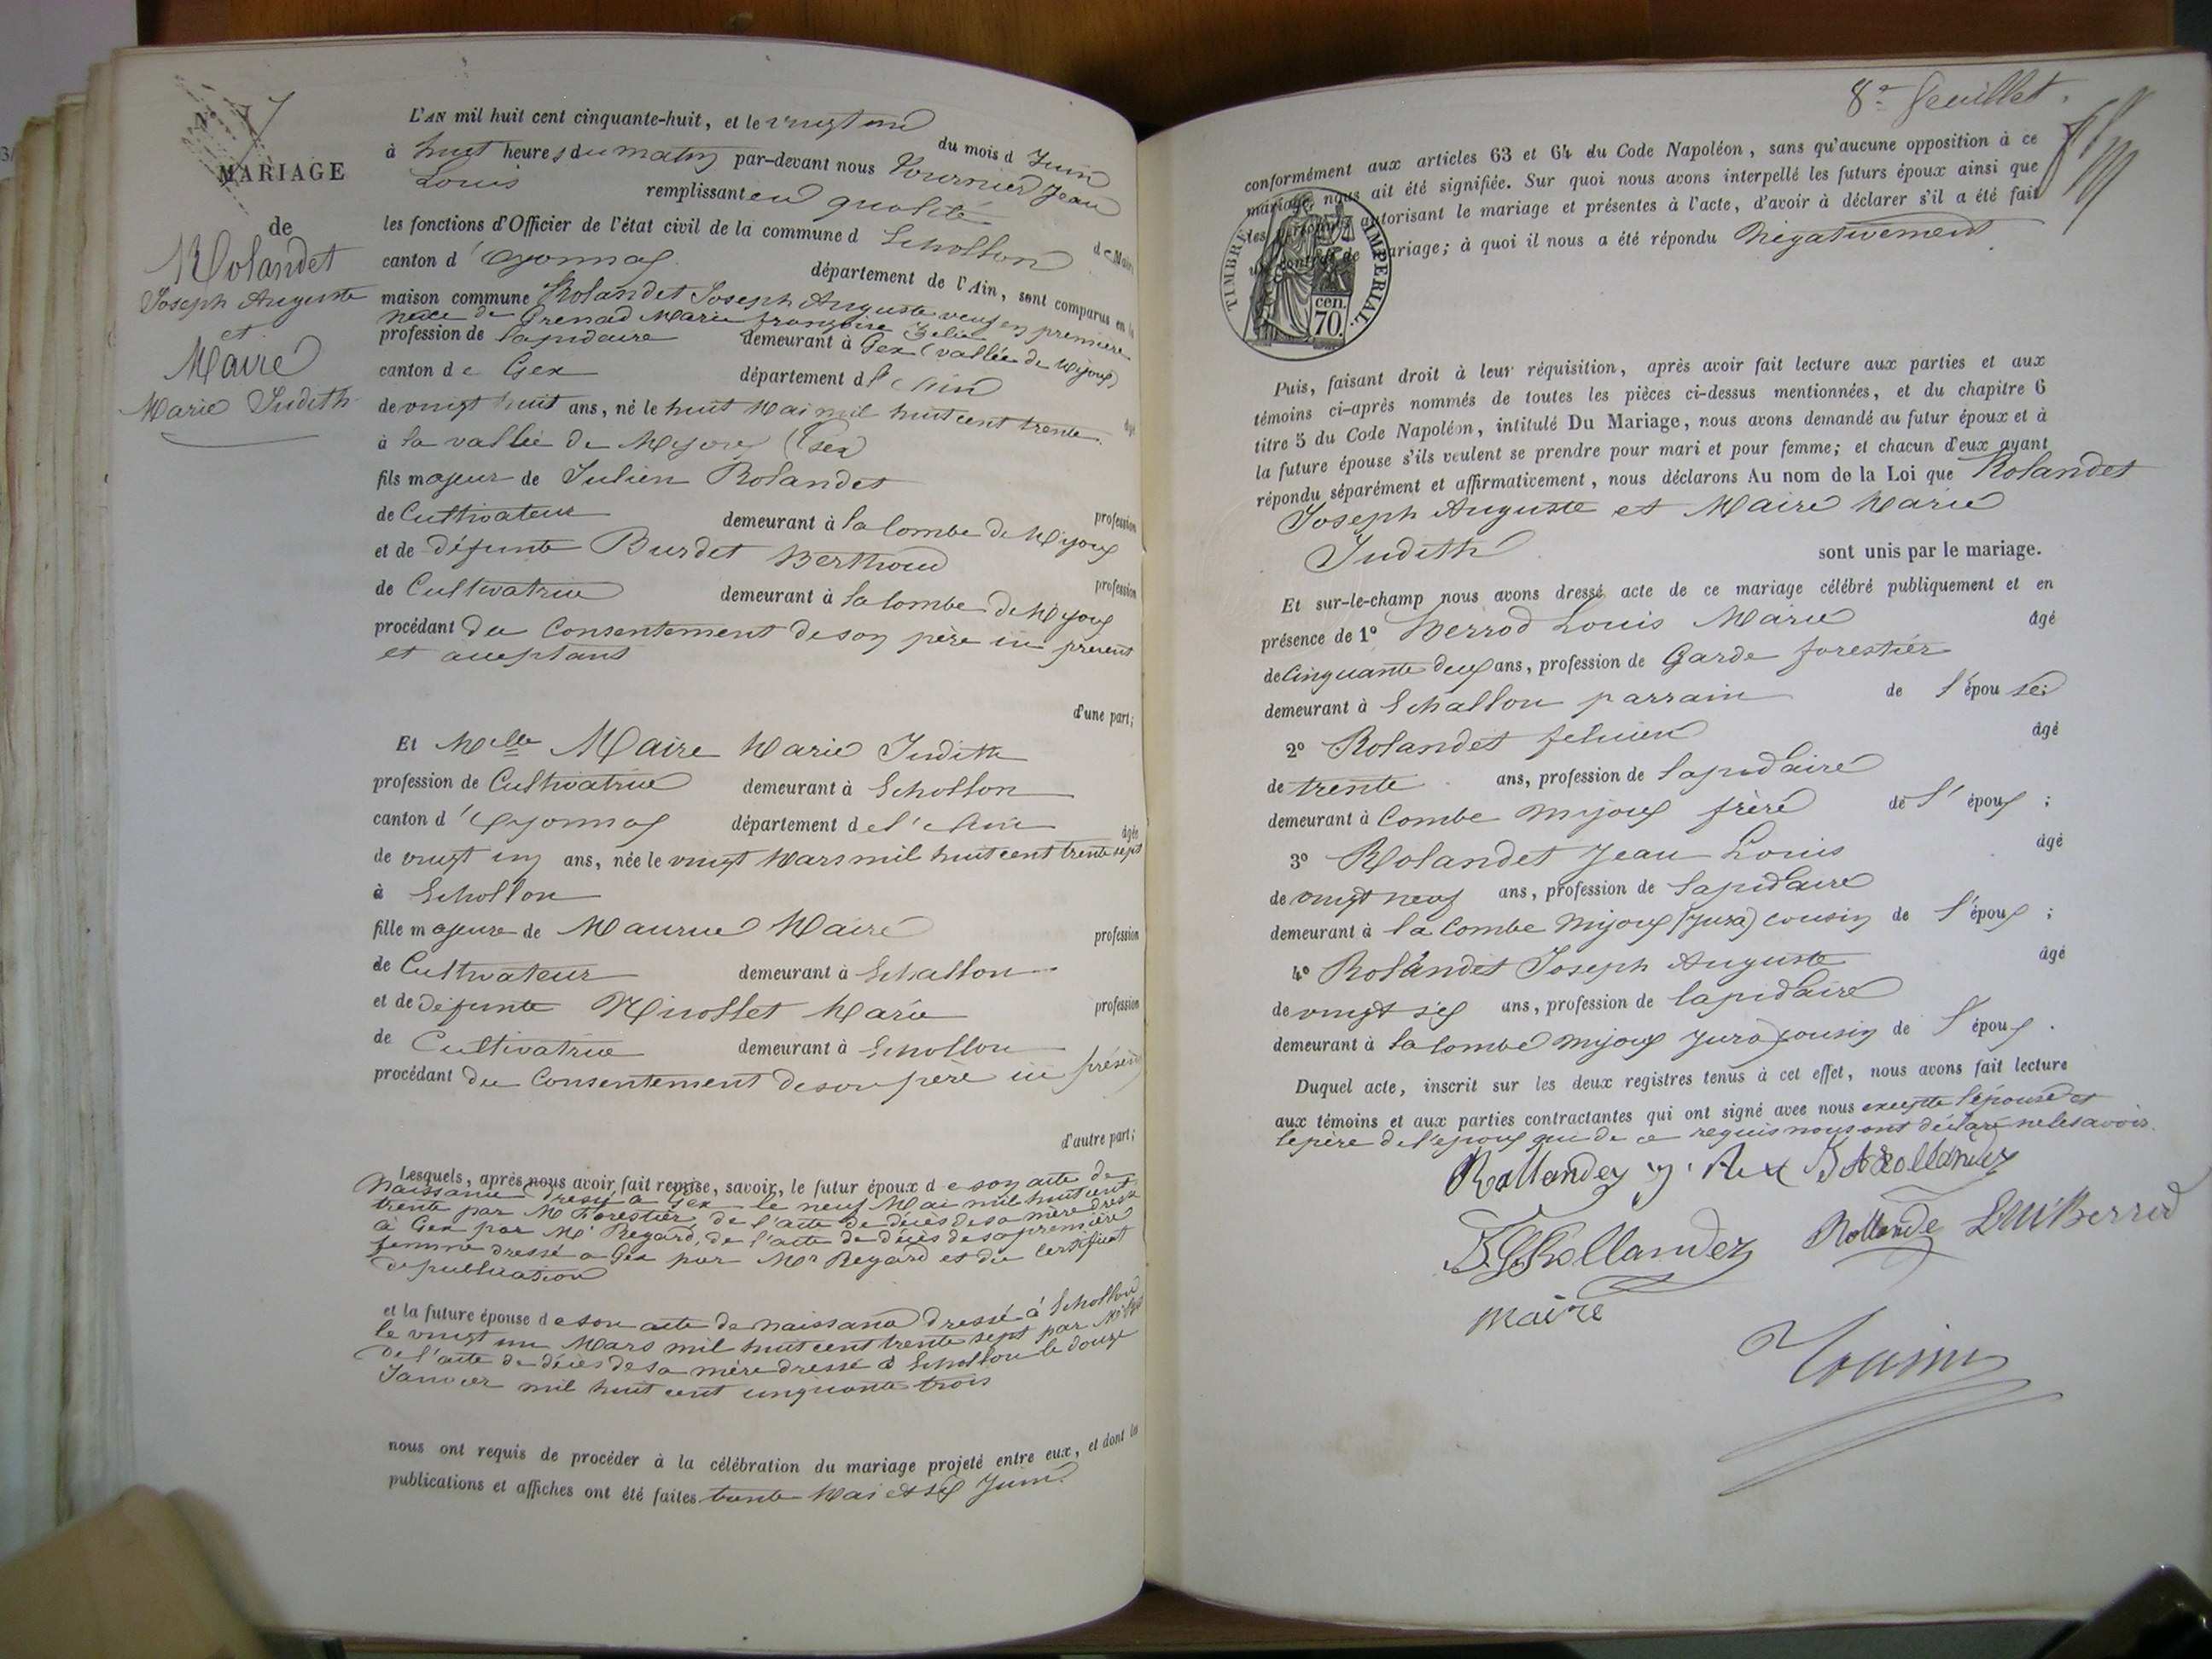 MARIAGE
de
Rolandet
Joseph Auguste
et
Maire
Marie Judith
L'AN mil huit cent cinquante-huit, et le vingt un du mois d Juin
à huit heures du matin par-devant nous Tournier Jean
Louis remplissant en qualité de Maire
les fonctions d'Officier de l'état civil de la commune d Echallon
canton d'Oyonnax département de l'Ain, sont comparus en la
maison commune Rolandet Joseph Auguste veuf en première
noce de Grenad Marie françoise Zelie
profession de lapidaire demeurant à Gex (vallée de Mijoux)
canton de Gex département de l'Ain âgé
de vingt huit ans, né le huit Mai mil huit cent trente
à la vallée de Mijoux (Gex)
fils majeur de Julien Rolandet profession
de Cultivateur demeurant à la Combe de Mijoux
et de défunte Burdet Berthoud profession
de Cultivatrice demeurant à la Combe de Mijoux
procédant du Consentement de son père ici présent
et acceptant
d'une part;
Et Melle Maire Marie Judith
profession de Cultivatrice demeurant à Echollon
canton d'Oyonnax département de l'Ain âgée
de vingt un ans, née le vingt Mars mil huit cent trente sept
à Echollon
fille majeure de Maurice Maire profession
de Cultivateur demeurant à Echallon
et de défunte Nicollet Marie profession
de Cultivatrice demeurant à Echollon
procédant du Consentement de son père ici présent
d'autre part;
Lesquels, après nous avoir fait remise, savoir, le futur époux de son acte de
naissance dressé à Gex le neuf Mai mil huit cent
trente par Mr Forestier, de l'acte de décès de sa mère dressé
à Gex par Mr Regard, de l'acte de décès de sa première
femme dressé a Gex par Mr Regard et du certificat
de publication
et la future épouse de son acte de naissance dressé à Echollon
le vingt un Mars mil huit cent trente sept par
de l'acte de décès de sa mère dressé à Echollon le douze
Janvier mil huit cent cinquante trois
nous ont requis de procéder à la célébration du mariage projeté entre eux, et dont les
publications et affiches ont été faites trente Mai et six Juin
8e feuillet.
conformément aux articles 63 et 64 du Code Napoléon, sans qu'aucune opposition à ce
mariage nous ait été signifiée. Sur quoi nous avons interpellé les futurs époux ainsi que
les personnes autorisant le mariage et présentes à l'acte, d'avoir à déclarer s'il a été fait
un contrat de mariage; à quoi il nous a été répondu Négativement.
TIMBRE IMPERIAL.
cen.
70.
Puis, faisant droit à leur réquisition, après avoir fait lecture aux parties et aux
témoins ci-après nommés de toutes les pièces ci-dessus mentionnées, et du chapitre 6
titre 5 du Code Napoléon, intitulé Du Mariage, nous avons demandé au futur époux et à
la future épouse s'ils veulent se prendre pour mari et pour femme; et chacun d'eux ayant
répondu séparément et affirmativement, nous déclarons Au nom de la Loi que Rolandet
Joseph Auguste et Maire Marie
Judith sont unis par le mariage.
Et sur-le-champ nous avons dressé acte de ce mariage célébré publiquement et en
présence de 1° Berrod Louis Marie âgé
de Cinquante deux ans, profession de Garde forestier
demeurant à Echallon parrain de l'épouse;
2° Rolandet âgé
de trente ans, profession de lapidaire
demeurant à Combe Mijoux frère de l'époux;
3° Rolandet Jean Louis âgé
de vingt neuf ans, profession de lapidaire
demeurant à la Combe Mijoux (Jura) cousin de l'époux;
4° Rolandet Joseph Auguste âgé
de vingt six ans, profession de lapidaire
demeurant à la Combe Mijoux Jura) cousin de l'époux.
Duquel acte, inscrit sur les deux registres tenus à cet effet, nous avons fait lecture
aux témoins et aux parties contractantes qui ont signé avec nous excepté l'épouse et
le père de l'époux qui de ce requis nous ont déclaré ne le savoir.
Rollandez
Rollandez Rollande Berrod
Maire